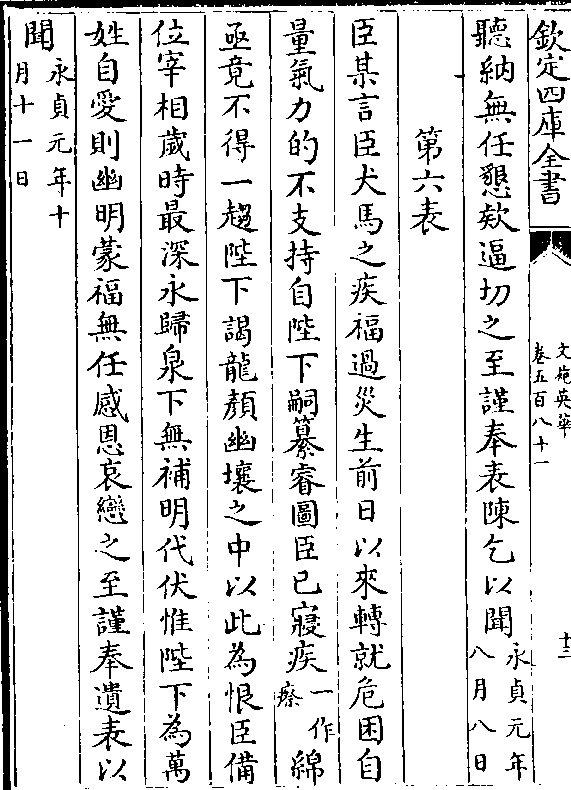 欽定四庫全書
文苑英華
卷五百八十一
十三
聽納無任懇欵逼切之至謹奉表陳乞以聞永貞元年八月八日
第六表
臣某言臣犬馬之疾福過災生前日以來轉就危困自
量氣力的不支持自陛下嗣纂睿圖臣已寢疾一作瘵綿
亟竟不得一趨陛下謁龍顏幽壤之中以此為恨臣備
位宰相歲時最深永歸泉下無補明代伏惟陛下為萬
姓自愛則幽明蒙福無任感恩哀戀之至謹奉遺表以
聞永貞元年十月十一日